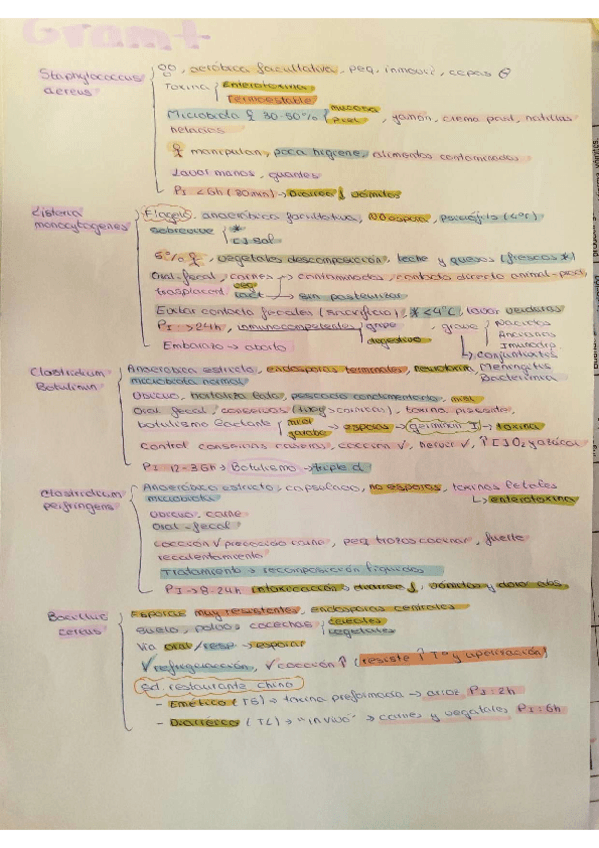 Gram +
Staphylococcus aereus
, aeróbica facultativa, peq. inmovil, cepas ⊖
Toxina { Enterotoxina
Termoestable
Microbiota ♀ 30-50% { mucosa
piel , jamón, crema past, natillas
helados
manipulan, poca higiene, alimentos contaminados
Lavar manos, guantes
PI <6h (30min) → Diarrea, vómitos
Listeria monocytogenes
Flagelo, anaeróbica facultativa, NO espora, psicrófila (4ºC)
sobrevive { *
Cl sal
5% , vegetales descomposición, leche y quesos (frescos *)
Oral-fecal, carnes → contaminadas, contacto directo animal-prod
trasplacent
lact → sin pasteurizar
Evitar contacto fecales (sacrificio), * <4ºC, lavar verduras
PI: >24h, inmunocompetentes { gripe
digestivo
grave { Nacidos
Ancianos
Inmunodep
Embarazo → aborto
↳ conjuntivitis
Meningitis
Bacteriemia
Clostridium Botulinum
Anaeróbica estricto, endosporas terminales, neurotoxina
microbiota normal
Obicuo, hortaliza lata, pescado condimentado, miel
Oral fecal, conservas ( > cárnicas), toxina presente
botulismo lactante { miel
→ esporas → germinan I → toxina
Control conservas caseras, cocción ✓, hervir ✓, ↑[ ]O₂ y azúcar
PI: 12-36h → Botulismo → triple d
Clostridium perfringens
Anaeróbico estricto, capsulado, no esporas, toxinas letales
microbiota
↳ enterotoxina
Obicuo, carne
Oral-fecal
cocción ✓ precocido, peq trozos cocinar, fuerte
recalentamiento
Tratamiento → recomposición líquidos
PI → 8-24h intoxicación → diarrea, vómitos y dolor abs.
Bacillus cereus
Esporas muy resistentes, endosporas centrales
suelo, polvo, cosechas { cereales
vegetales
Vía oral/resp → esporas
✓ refrigeración, ✓ cocción ↑ (resiste ↑ Tª y )
Sd. restaurante chino
- Emético (TE) → toxina preformada → arroz PI: 2h
- Diarréico (TL) → "in vivo" → carnes y vegetales PI: 6h